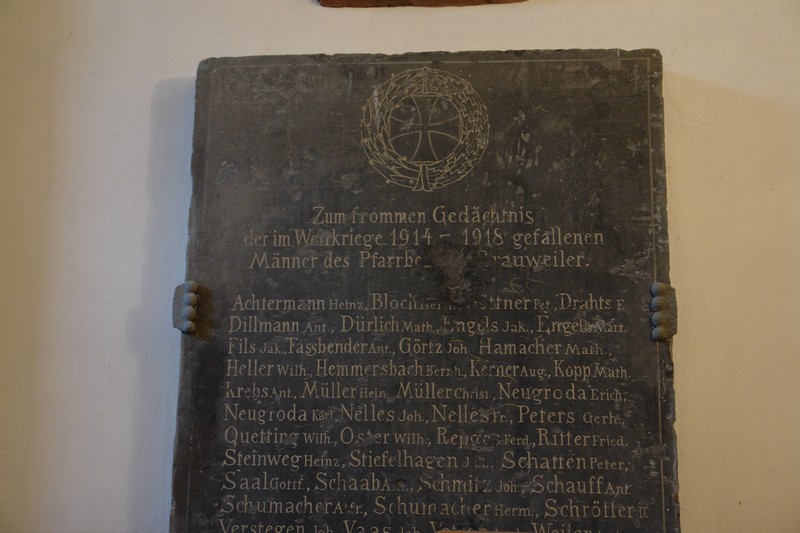 Zum frommen Gedächtnis
der im Weltkriege 1914 - 1918 gefallenen
Männer des Pfarrbe Brauweiler.
Achtermann Heinz, Bloch Pet., Drahts F.
Dillmann Ant., Dürlich Math., Engels Jak., Engels Mart.
Fils Jak., Fassbender Ant., Görtz Joh. Hamacher Math.,
Heller Wilh., Hemmersbach Bernh., Kerner Aug., Kopp Math.
Krebs Ant., Müller Hein. Müller Christ., Neugroda Erich,
Neugroda Karl, Nelles Joh., Nelles Fr., Peters Gerh.,
Quetting Wilh., Oster Wilh., Repges Ferd., Ritter Fried.
Steinweg Heinz, Stiefelhagen Schatten Peter,
Saal Gottf., Schaab Schmitz Joh., Schauff Ant.
Schumacher Alfr., Schumacher Herm., Schröffer
Verstegen Joh. Vaas Joh. Weiler